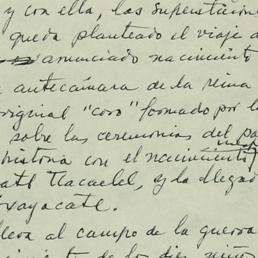 y con ella, las superstición
queda planteado el viaje a
anunciado nacimiento
antecámara de la reina
original "coro" formado por l
sobre las ceremonias del pa
historia con el nacimiento
atl Tlacaelel, y la llegad
vayacatl.
lleva al campo de la guerra
de los dios niños